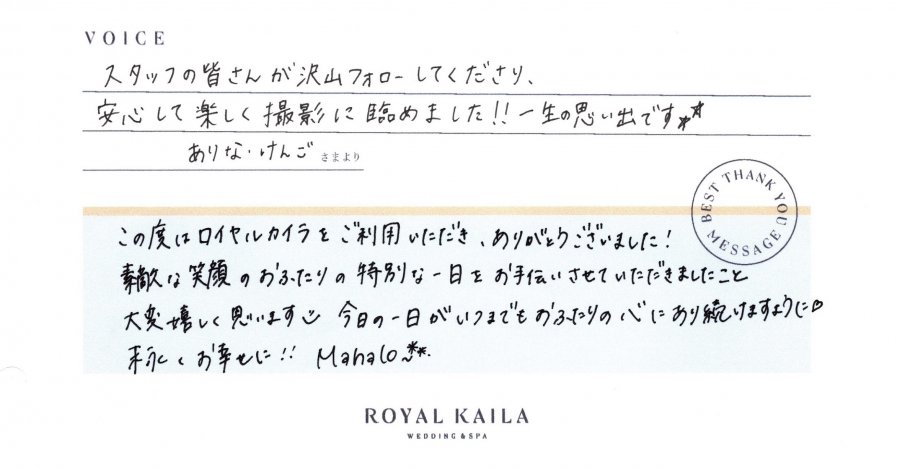 VOICE
スタッフの皆さんが沢山フォローしてくださり、
安心して楽しく撮影に臨めました!! 一生の思い出です**
ありな・けんご さまより
BEST THANK YOU MESSAGE
この度はロイヤルカイラをご利用いただき、ありがとうございました!
素敵な笑顔のおふたりの特別な一日をお手伝いさせていただきましたこと
大変嬉しく思います 今日の一日がいつまでもおふたりの心にあり続けますように♡
末永くお幸せに!! Mahalo**.
ROYAL KAILA
WEDDING & SPA